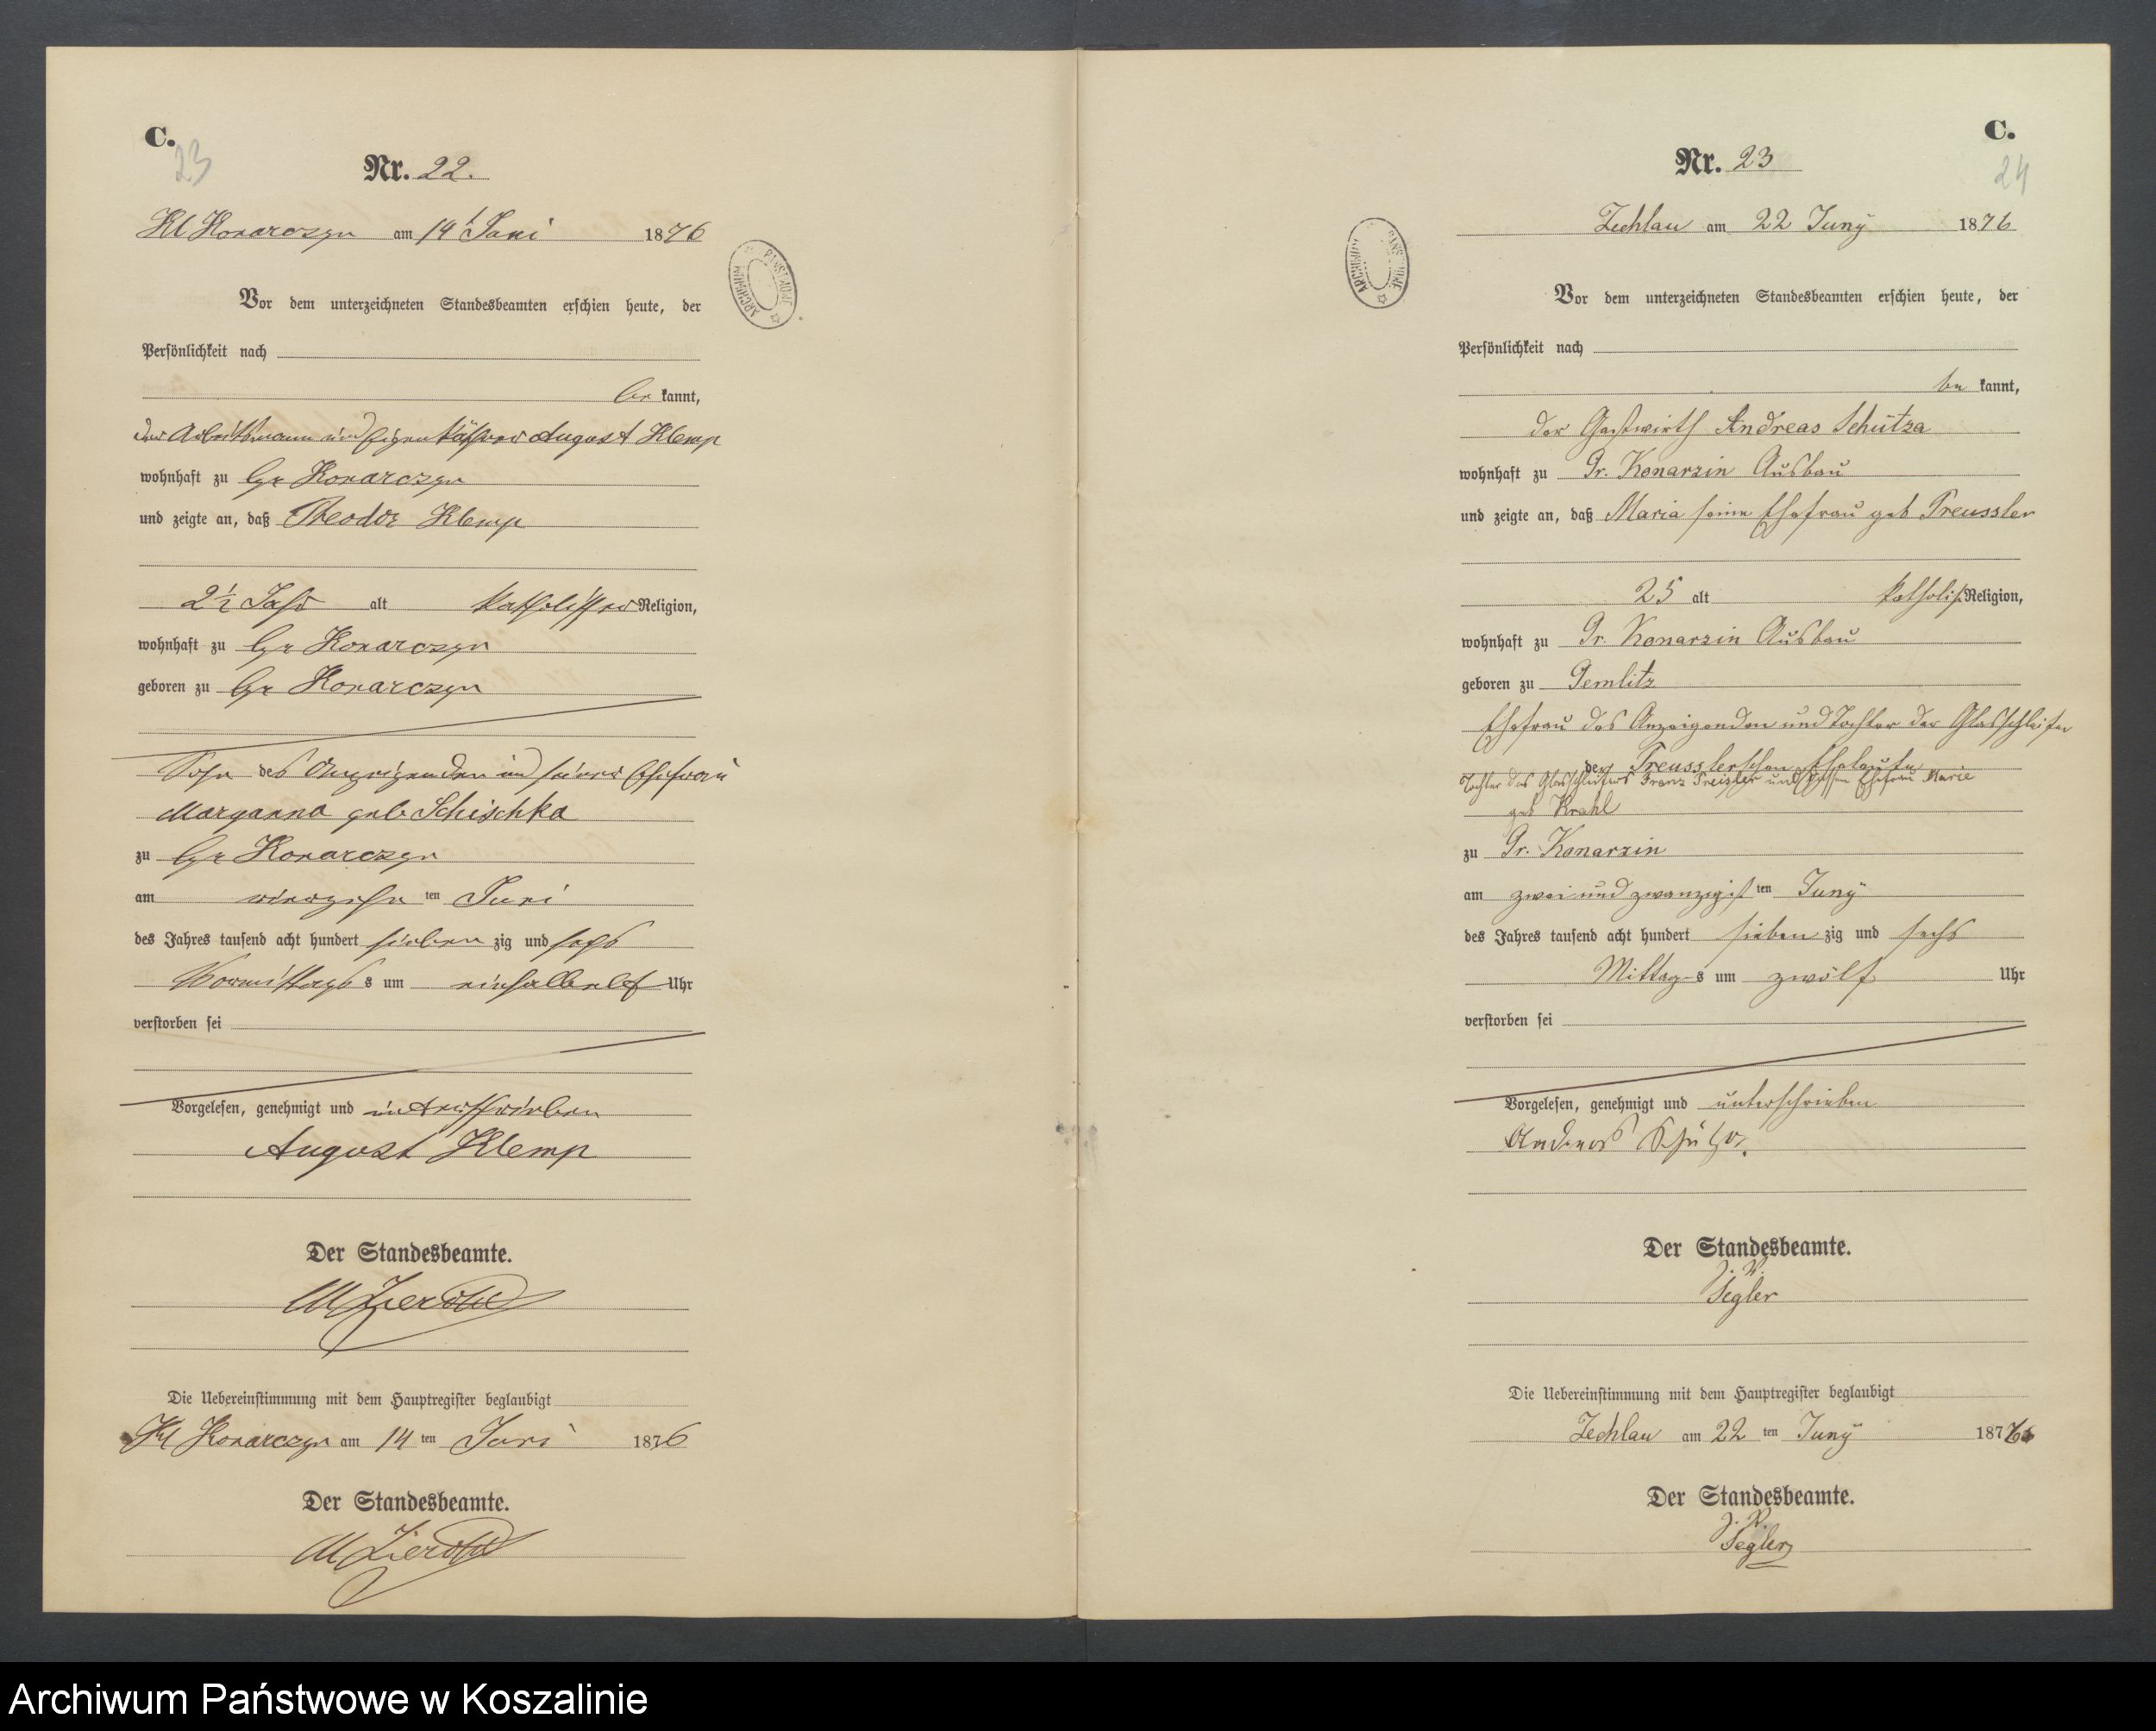 C.
23
Nr. 22.
Kl Konarczyn am 14t Juni 1876
Vor dem unterzeichneten Standesbeamten erschien heute, der
Persönlichkeit nach
be kannt,
der Arbeitsmann und Eigenkäthner August Klemp
wohnhaft zu Gr Konarczyn
und zeigte an, daß Theodor Klemp
2½ Jahr alt katholischer Religion,
wohnhaft zu Gr Konarczyn
geboren zu Gr Konarczyn
Sohn des Anzeigenden und seiner Ehefrau
Maryanna geb Schischka
zu Gr Konarczyn
am vierzehn ten Juni
des Jahres tausend acht hundert sieben zig und sechs
Vormittags s um einhalb elf Uhr
verstorben sei
Vorgelesen, genehmigt und unterschrieben
August Klemp
Der Standesbeamte.
Die Uebereinstimmung mit dem Hauptregister beglaubigt
Kl Konarczyn am 14 ten Juni 1876
Der Standesbeamte.
C.
24
Nr. 23
Zechlau am 22 Juny 1876
Vor dem unterzeichneten Standesbeamten erschien heute, der
Persönlichkeit nach
be kannt,
der Gastwirth Andreas Schütza
wohnhaft zu Gr. Konarzin Ausbau
und zeigte an, daß Maria seine Ehefrau geb Preussler
25 alt katholisch Religion,
wohnhaft zu Gr. Konarzin Ausbau
geboren zu Pemlitz
Ehefrau des Anzeigenden und Tochter der Glasschleifer
der Preusslerschen Eheleute
Tochter des Glasschleifers Franz Preissler und dessen Ehefrau Marie
geb Krahl
zu Gr. Konarzin
am zwei und zwanzigst ten Juny
des Jahres tausend acht hundert sieben zig und sechs
Mittag s um zwölf Uhr
verstorben sei
Vorgelesen, genehmigt und unterschrieben
Andreas Schütza.
Der Standesbeamte.
J. V.
Segler
Die Uebereinstimmung mit dem Hauptregister beglaubigt
Zechlau am 22 ten Juny 1876
Der Standesbeamte.
J. V.
Segler
ARCHIWUM PAŃSTWOWE
ARCHIWUM PAŃSTWOWE
Archiwum Państwowe w Koszalinie